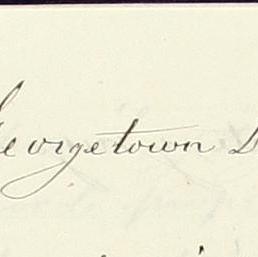 Georgetown D